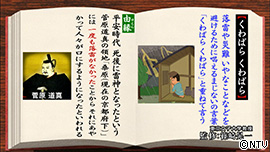 【くわばらくわばら】
落雷や災難・いやなことなどを
避けるために唱えるまじないの言葉
「くわばら くわばら」と重ねて言う
由縁
平安時代、死後に雷神となったという
菅原道真の領地「桑原」(現在の京都府下)
には一度も落雷がなかったことからそれにあや
かって人々が口にするようになったといわれる
菅原 道真
©NTV